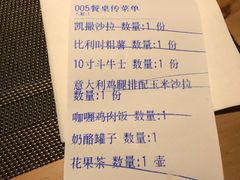 005餐桌传菜单
凯撒沙拉 数量:1 份
比利时粗薯 数量:1 份
10寸斗牛士 数量:1 份
意大利鸡腿排配玉米沙拉
数量:1 份
咖喱鸡肉饭 数量:1
奶酪罐子 数量:1
花果茶 数量:1 壶